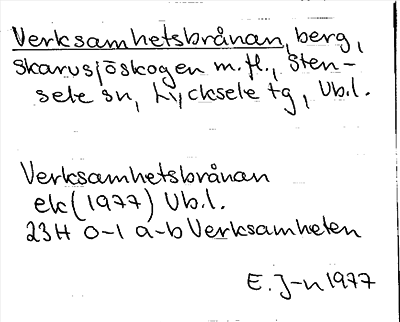 Verksamhetsbrånan, berg,
Skarvsjöskogen m.fl., Sten-
sele sn, Lycksele tg, Vb.l.
Verksamhetsbrånan
ek (1977) Vb.l.
23H 0-1 a-b Verksamheten
E. J-n 1977